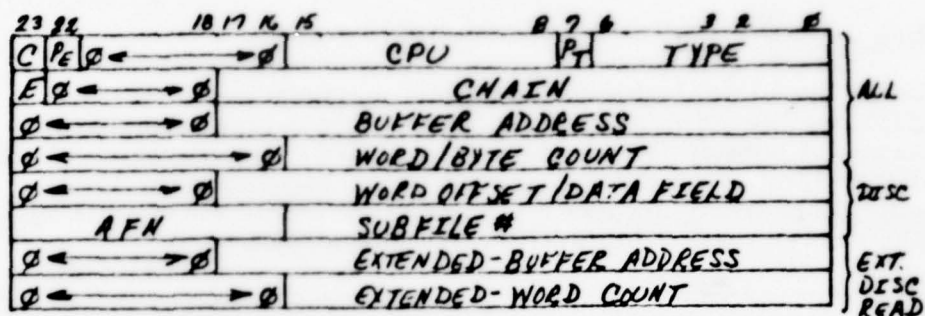 23 22 18 17 16 15 8 7 6 3 2 Ø
C PE Ø Ø CPU PT TYPE
E Ø Ø CHAIN ALL
Ø Ø BUFFER ADDRESS
Ø Ø WORD/BYTE COUNT
Ø Ø WORD OFFSET/DATA FIELD DISC
AFN SUBFILE #
Ø Ø EXTENDED-BUFFER ADDRESS EXT.
Ø Ø EXTENDED-WORD COUNT DISC
READ